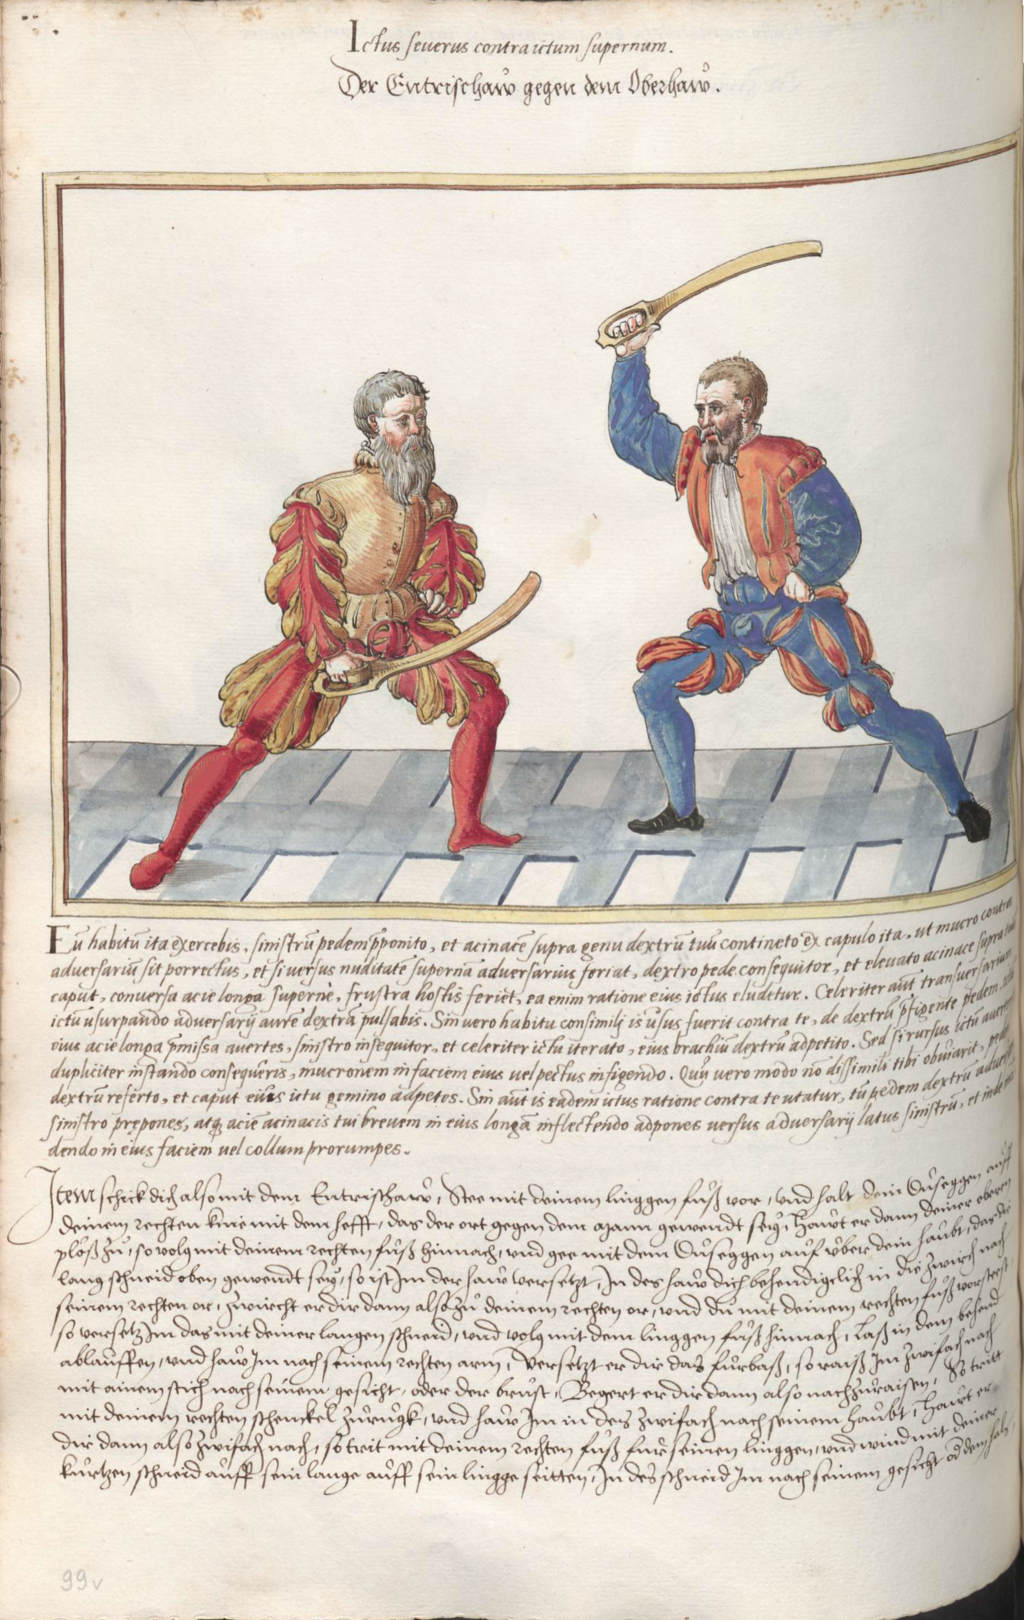 Ictus severus contra ictum supernum.
Der Entrischaw gegen dem Oberhaw.
Eũ habitũ ita exercebis, sinistrũ pedem p̃ponito, et acinacẽ supra genu dextrũ tuũ contineto ex capulo ita, ut mucro contra
adversariũ sit porrectus, et si versus nuditatẽ supernã adversarius feriat, dextro pede consequitor, et elevato acinace supra
caput, conversa acie longa supernè, frustra hostis feriet, ea enim ratione eius ictus eludetur. Celeriter aũt transversarium
ictũ usurpando adversarij aurẽ dextrã pulsabis. Sin vero habitu consimili is usus fuerit contra te, de dextrũ p̃figente pedem,
eius acie longa p̃missa avertes, sinistro insequitor, et celeriter ictu iterato, eius brachiũ dextrũ adpetito. Sed si rursus ictũ
dupliciter instando consequeris, mucronem in faciem eius vel pectus infigendo. Quũ vero modo nõ dissimili tibi obviarit,
dextrũ referto, et caput eius ictu gemino adpetes. Sin aũt is eadem ictus ratione contra te utatur, tũ pedem dextrũ
sinistro prepones, atq̃ aciẽ acinacis tui brevem in eius longã inflectendo adpones versus adversarij latus sinistrũ, et
dendo in eius faciem vel collum prorumpes.
Item schick dich also mit dem Entrischaw, Stee mit deinem linggen fuß vor, und halt dein Duseggen auff
deinem rechten knie mit dem hefft, das der ort gegen dem mann gewendt sey, Hawt er dann deiner oberen
plöß zu, so volg mit deinem rechten fuß hinnach, und gee mit dem Duseggen auf vber dein haubt, das die
lang schneid oben gewendt sey, so ist Im der haw versetzt, In des haw dich behendigclich in die zwirch nach
seinem rechten or, zwircht er dir dann also zu deinem rechten or, und du mit deinem rechten fuß vorsteest
so versetz Im das mit deiner langen schneid, und volg mit dem linggen fuß hinnach, Laß in dem behend
ablauffen, und haw Im nach seinem rechten arm, Versetzt er dir das furbaß, so raiß Im zwifach nach
mit ainem stich nach seinem gesicht, oder der brust, Begert er dir dann also nachzuraisen, So tritt
mit deinem rechten schenckel zurugk, und haw Im in des zwifach nach seinem haubt, Hawt er
dir dann also zwifach nach, so trit mit deinem rechten fuß fur seinen linggen, und wind mit deiner
kurtzen schneid auff sein lange auff sein lingge seitten, In des schneid Im nach seinem gesicht od dem hals
99v